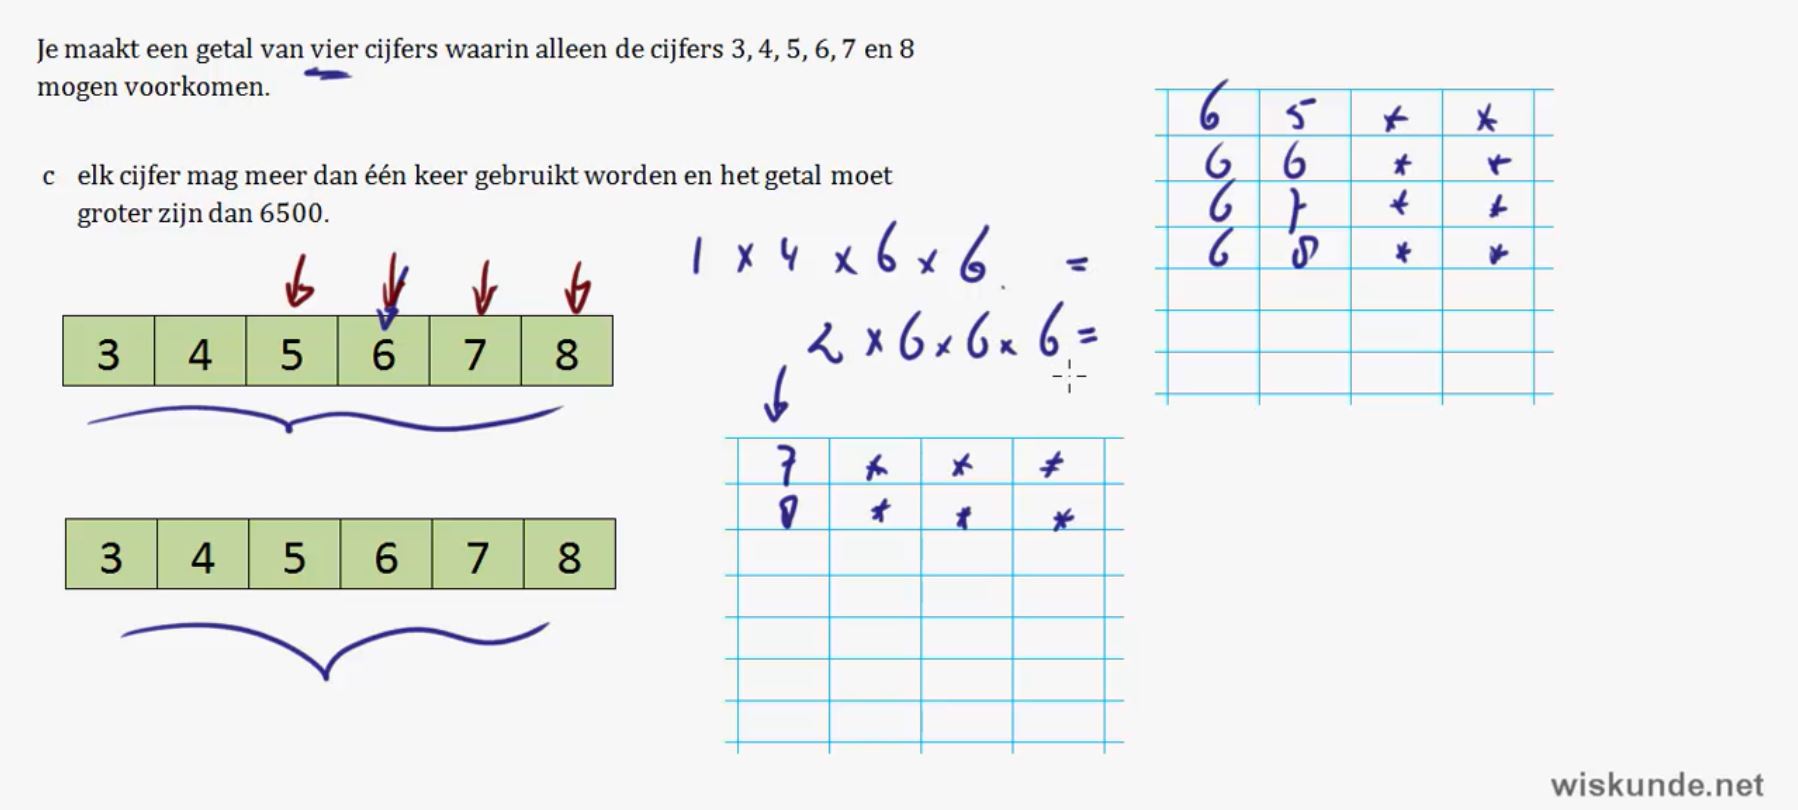 Je maakt een getal van vier cijfers waarin alleen de cijfers 3, 4, 5, 6, 7 en 8
mogen voorkomen.
c elk cijfer mag meer dan één keer gebruikt worden en het getal moet
groter zijn dan 6500.
1 x 4 x 6 x 6 =
2 x 6 x 6 x 6 =
6 5 * *
6 6 * *
6 7 * *
6 8 * *
3 4 5 6 7 8
7 * * *
8 * * *
3 4 5 6 7 8
wiskunde.net